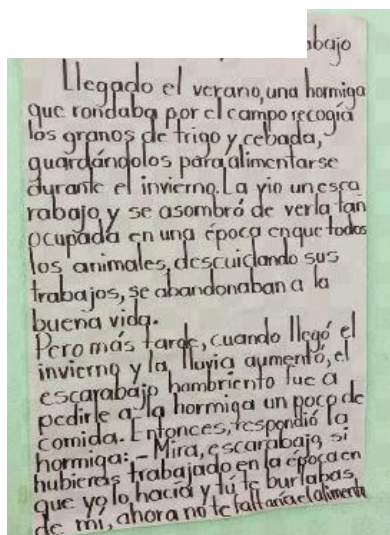 abajo
Llegado el verano, una hormiga
que rondaba por el campo recogía
los granos de trigo y cebada,
guardándolos para alimentarse
durante el invierno. La vio un esca
rabajo y se asombró de verla tan
ocupada en una época en que todos
los animales, descuidando sus
trabajos, se abandonaban a la
buena vida.
Pero más tarde, cuando llegó el
invierno y la lluvia aumentó, el
escarabajo hambriento fue a
pedirle a la hormiga un poco de
comida. Entonces, respondió la
hormiga: - Mira, escarabajo, si
hubieras trabajado en la época en
que yo lo hacía y tú te burlabas
de mí, ahora no te faltaría el alimento